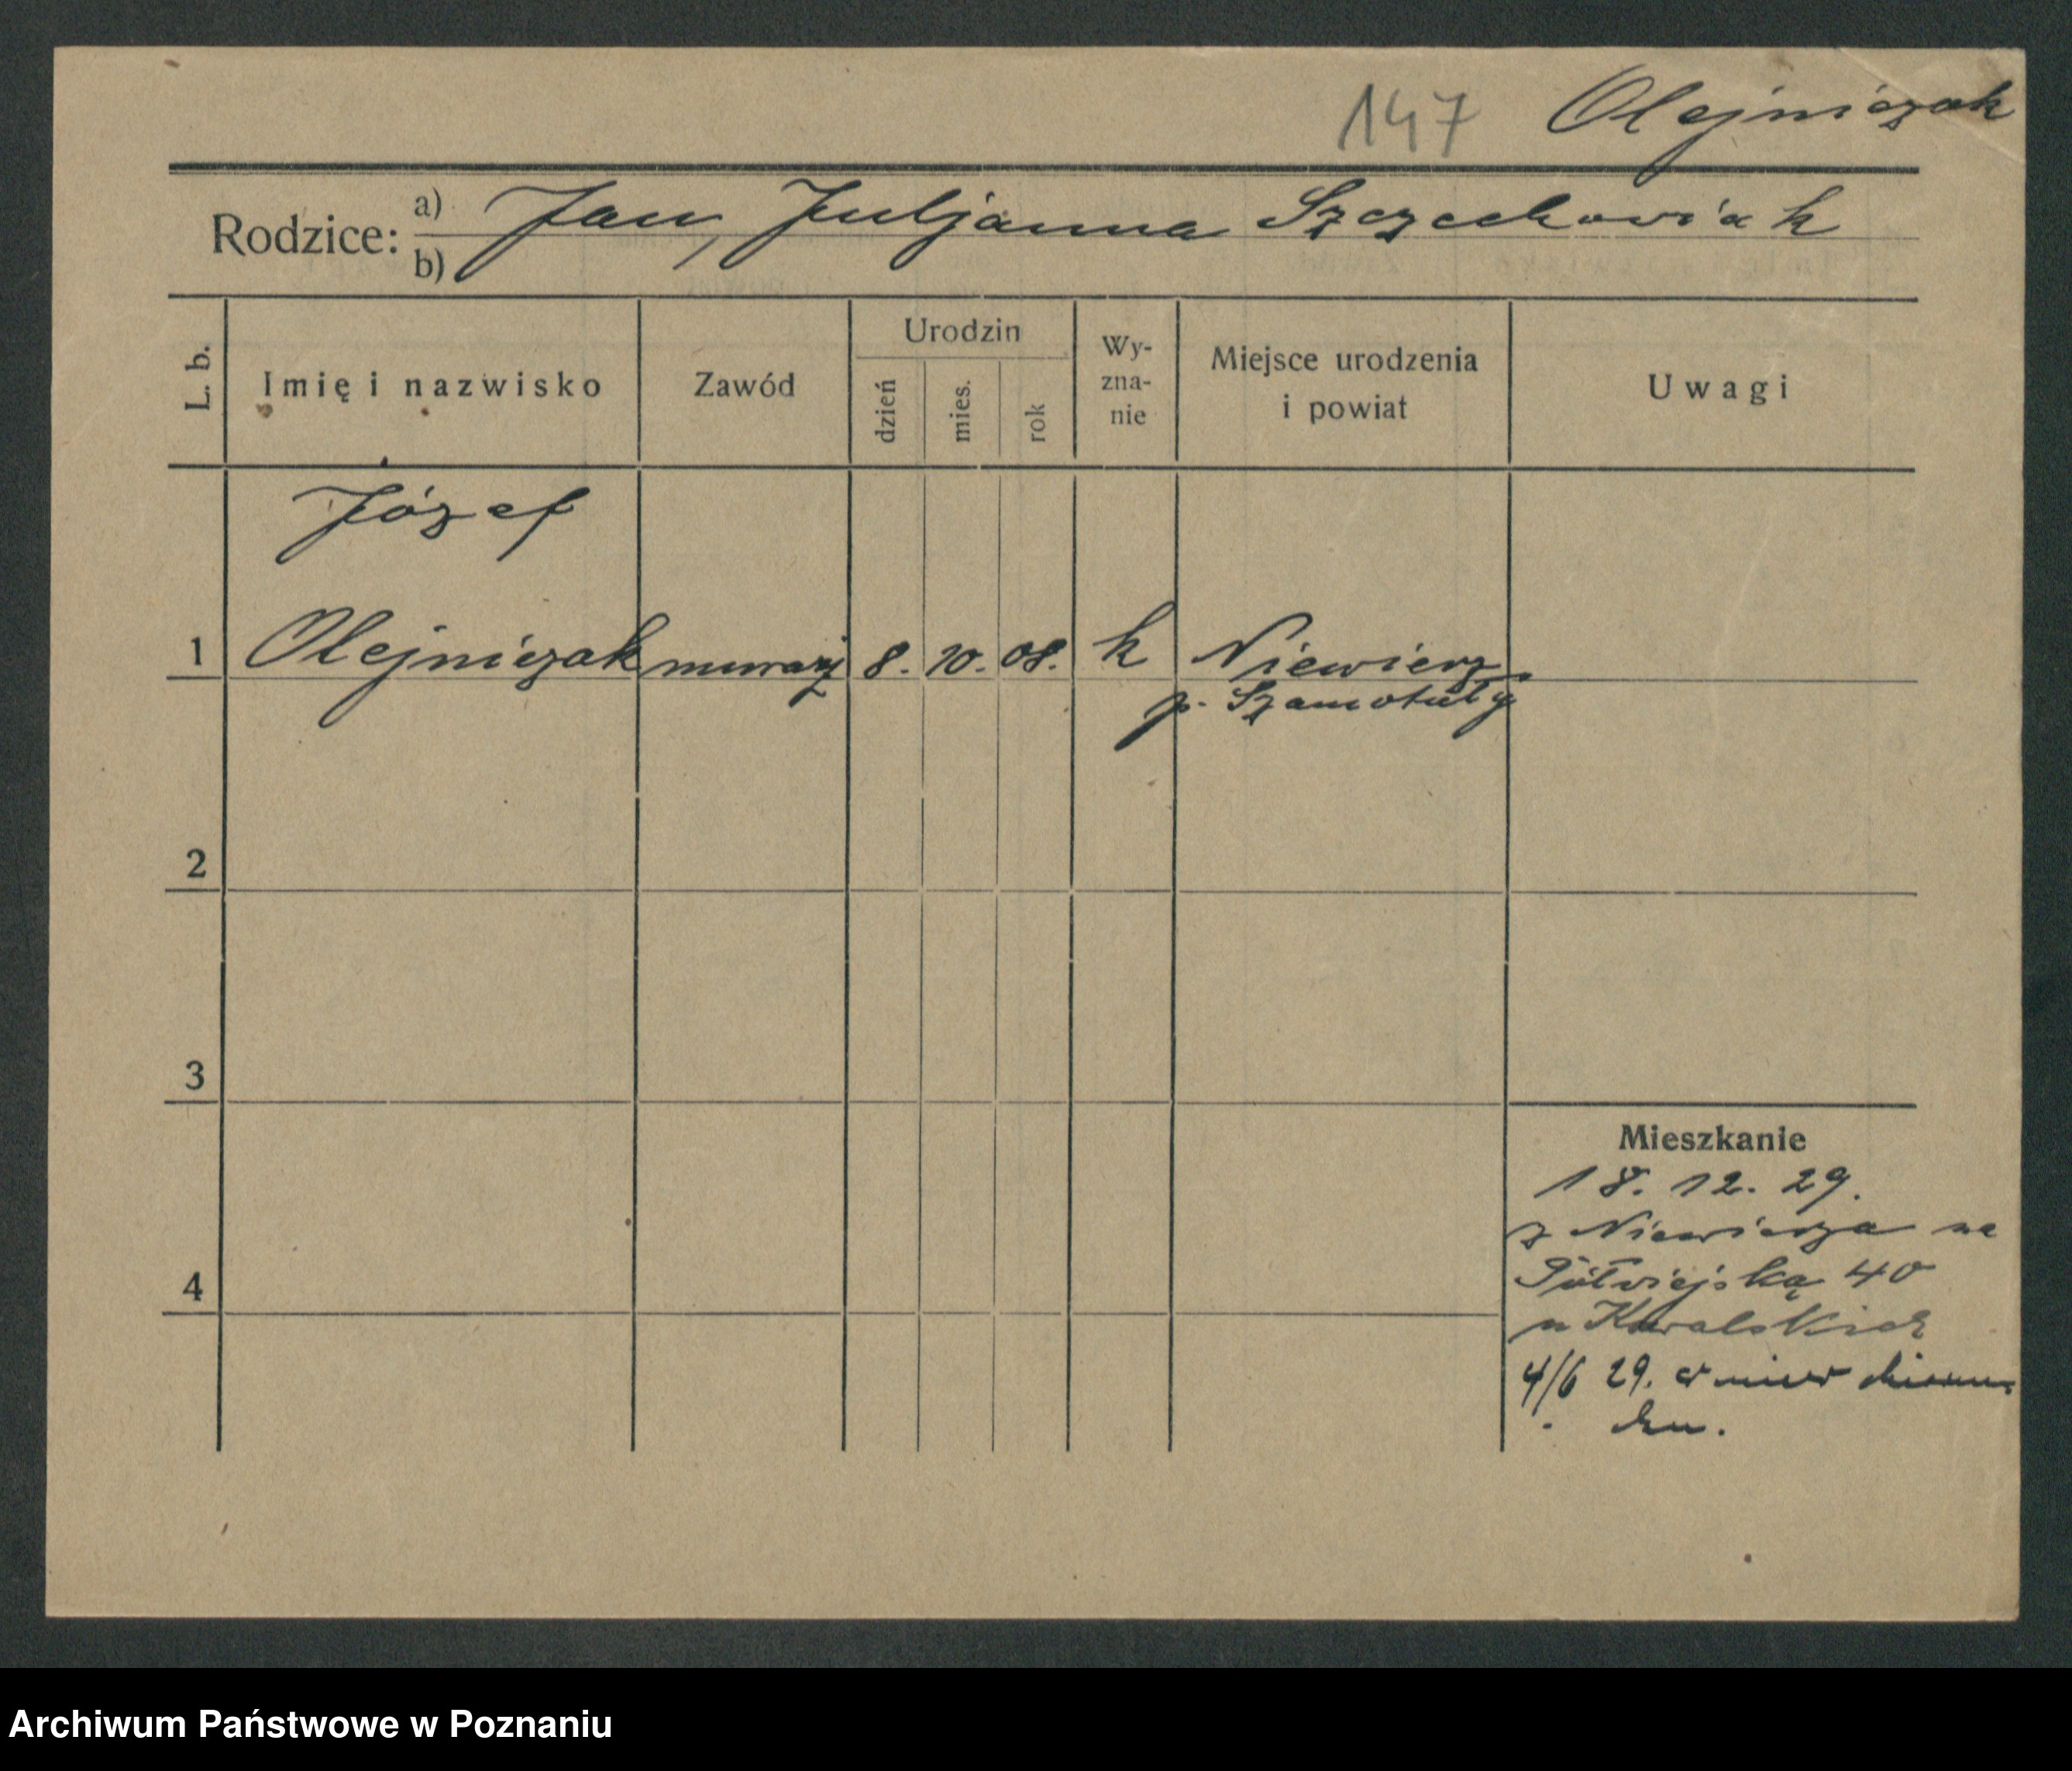 147 Olejniczak
Rodzice: a) b) Jan, Juljanna Szczechowiak
L. b.
Imię i nazwisko
Zawód
Urodzin
dzień
mies.
rok
Wy-
zna-
nie
Miejsce urodzenia
i powiat
Uwagi
Józef
1 Olejniczak murarz 8. 10. 08. k Niewierz
p. Szamotuły
2
3
4
Mieszkanie
18. 12. 29.
z Niewierza na
Półwiejską 40
u Kowalskich
4/6 29. w
Archiwum Państwowe w Poznaniu